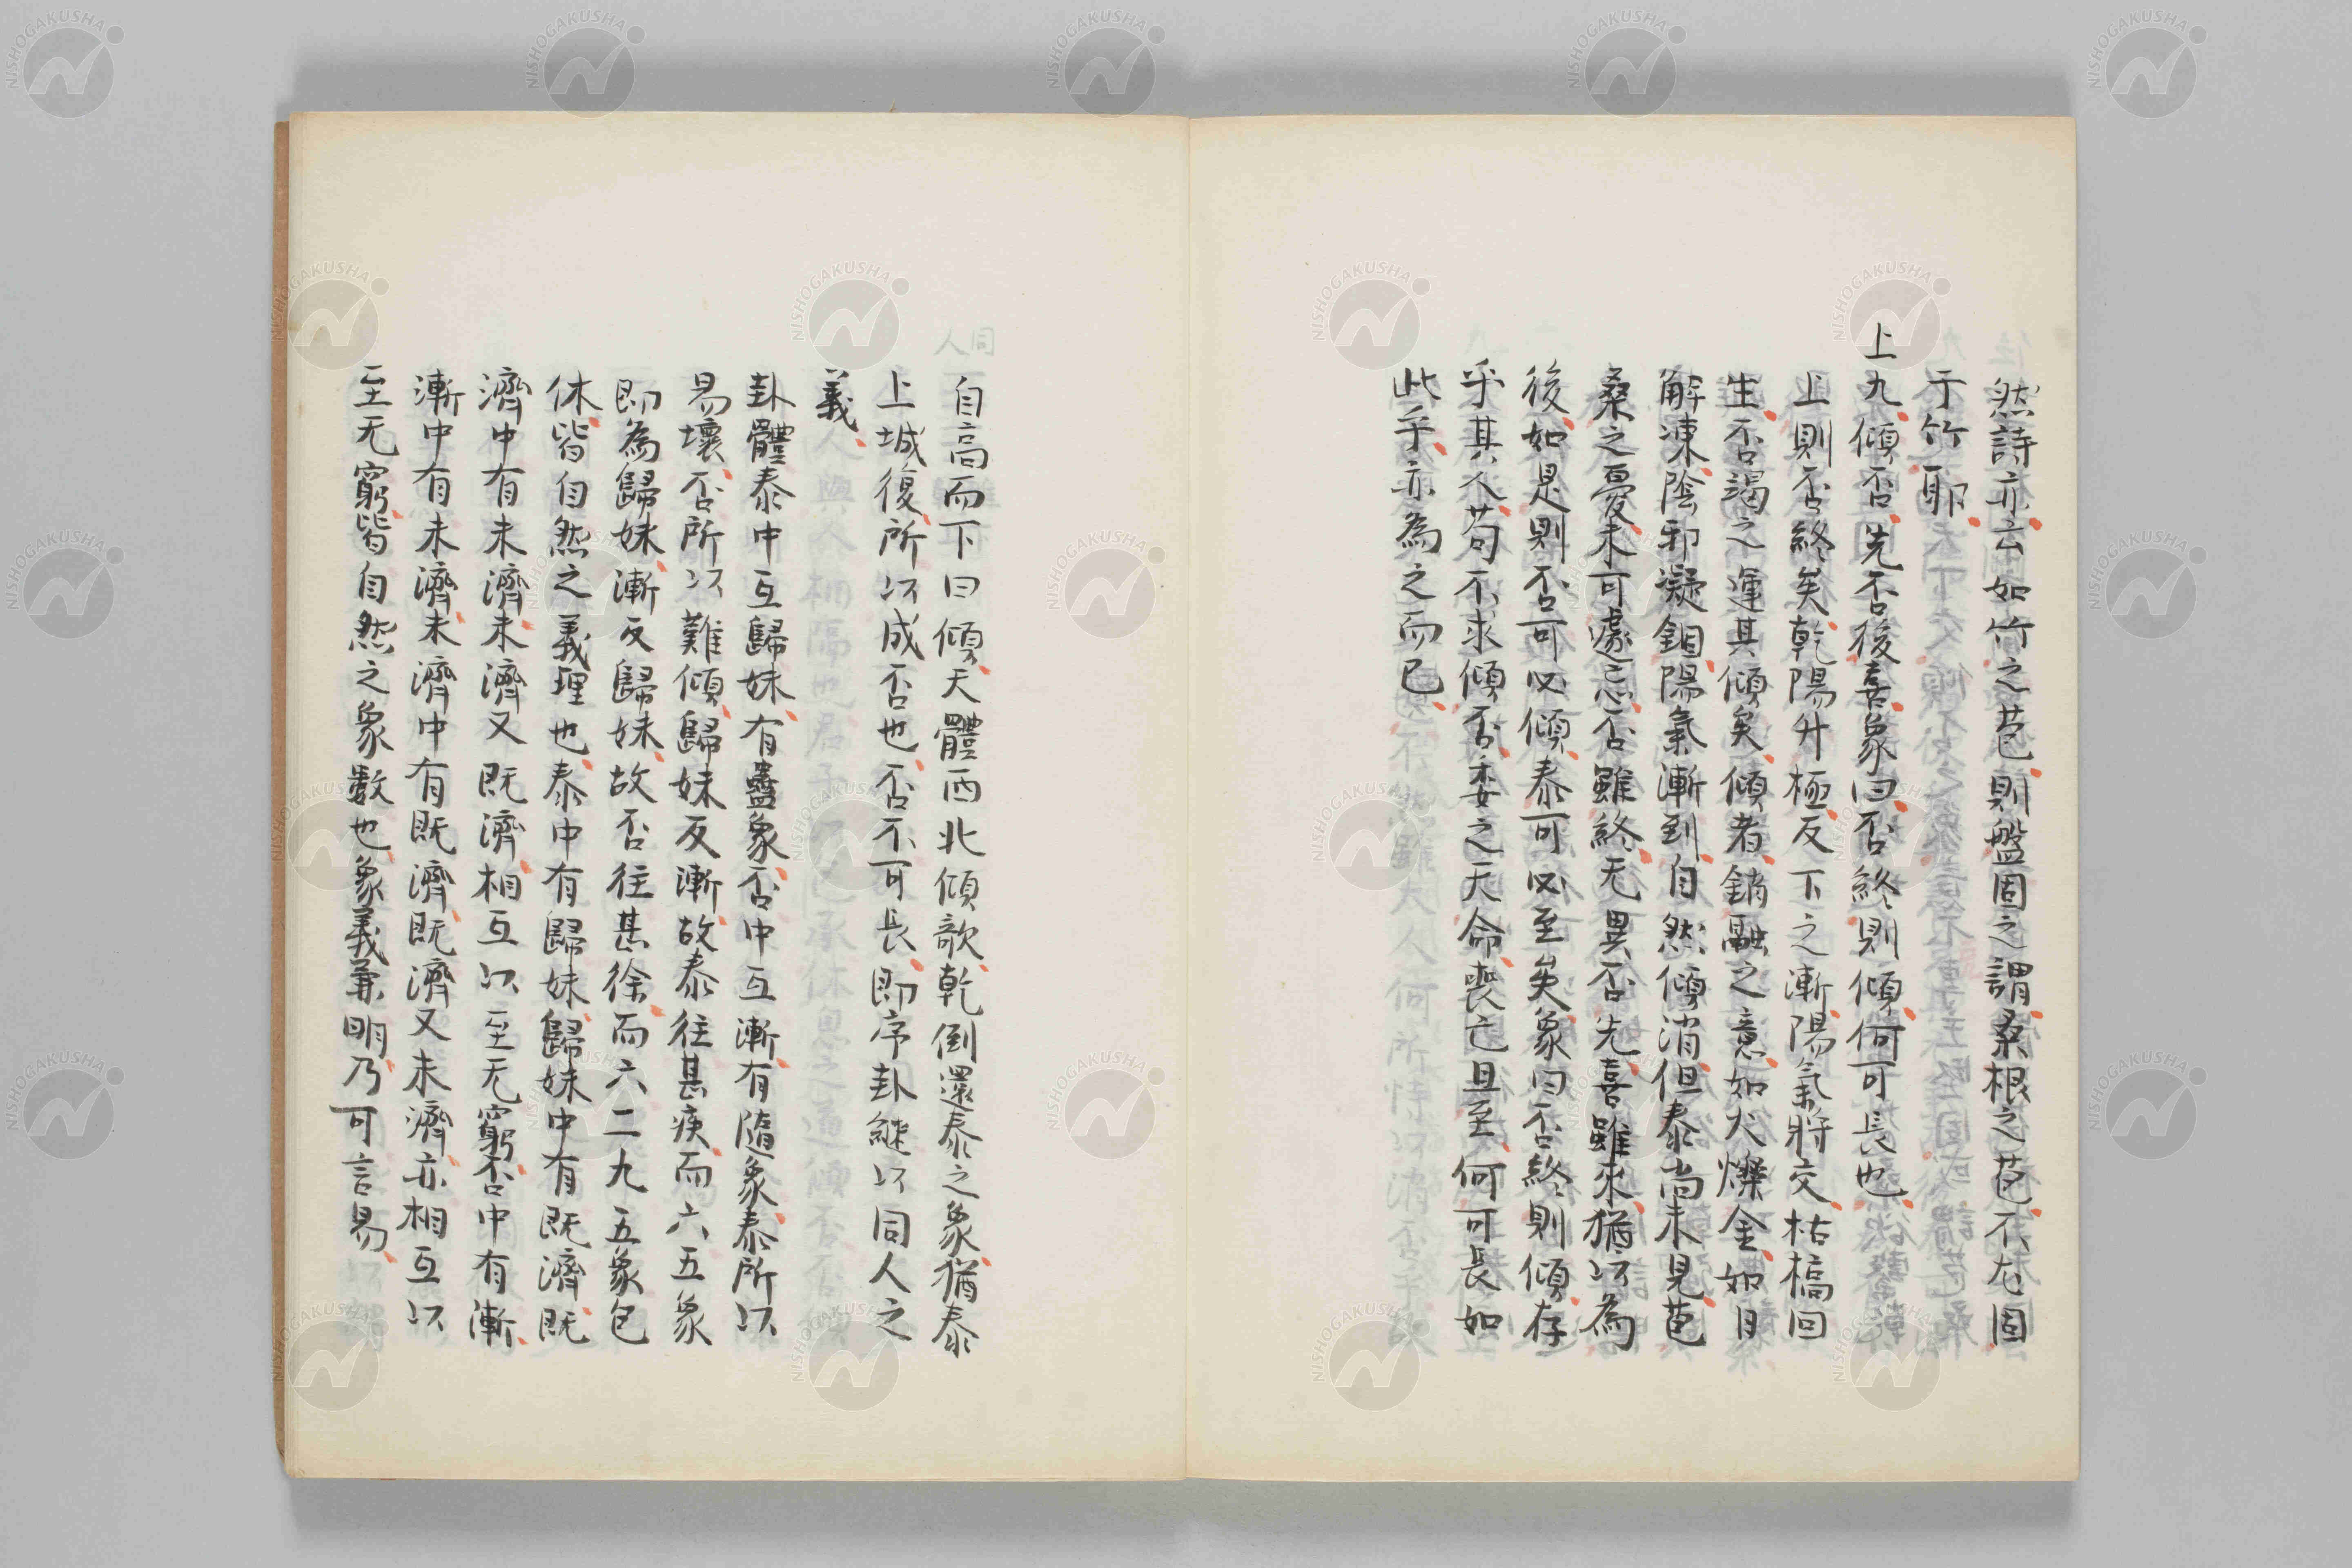 然詩亦云如竹之苞則盤固之謂桑根之苞不尤固
于竹耶
上九傾否先否後喜象曰否終則傾何可長也
上則否終矣乾陽升極反下之漸陽氣將交枯槁回
生否竭之運其傾矣傾者銷融之意如火爍金如日
解凍陰邪凝錮陽氣漸到自然傾消但泰尚未見苞
桑之憂未可遽忘否雖終无異否先喜雖來猶以為
後如是則否可必傾泰可必至矣象曰否終則傾存
乎其人苟不求傾否委之天命喪亡且至何可長如
此乎亦為之而已
自高而下曰傾天體西北傾欹乾倒還泰之象猶泰
上城復所以成否也否不可長即序卦継以同人之
義
卦體泰中互歸妹有蠱象否中互漸有隨象泰所以
易壞否所以難傾歸妹反漸故泰往甚疾而六五象
即為歸妹漸反歸妹故否往甚徐而六二九五象包
休皆自然之義理也泰中有歸妹歸妹中有既濟既
濟中有未濟未濟又既濟相互以至无窮否中有漸
漸中有未濟未濟中有既濟既濟又未濟亦相互以
至无窮皆自然之象數也象義兼明乃可言易
NISHOGAKUSHA